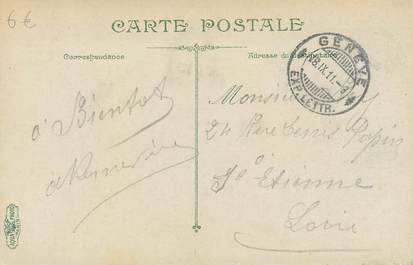 6€
CARTE POSTALE
Correspondance
Adresse du
GENÈVE
18.IX.11.
EXP. LETTR.
à Bientot
Monsieur
24 Rue Denis Papin
St Etienne
Loire